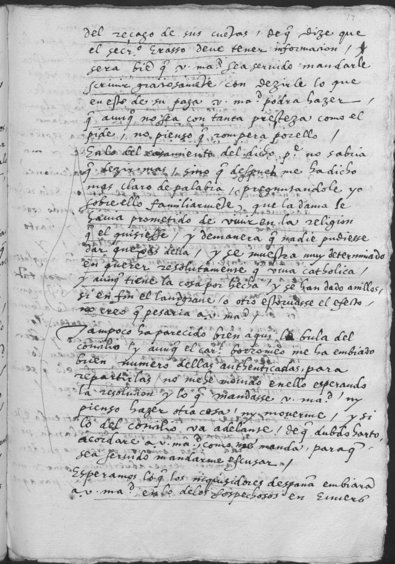 del recazo de sus cuentas / de q̃ dize que
el secr.º Erasso deve tener informacion /
sera bie q̃ v. ma.d sea servido mandarle
scrivir graciosamẽte con dezirle lo que
en esto de su paga v. ma.d podra hazer /
q̃ aunq̃ no sea con tanta presteza como el
pide / no pienso q̃ rompera por ello /
En lo del casamiento del dicho p.e no sabria
q̃ dezir mas / sino q̃ despues me ha dicho
mas claro de palabra / preguntandole yo
sobre ello familiarmẽte / que la dama le
havia prometido de vivir en la religion
q̃ el quisiesse / y de manera q̃ nadie pudiesse
dar quexas della / y se muestra muy determinado
en querer resolutamente q̃ viva catholica /
y aunq̃ tiene la cosa por hecha / y se han dado anillos /
si en fin el landgrave / o otro estorvasse el efeto
no creo q̃ pesaria a v. ma.d /
Tampoco ha parecido bien aqui la bula del
concilio / y aunq̃ el car.l borromeo me ha embiado
buen numero dellas authenticadas, para
repartirlas / no me he movido en ello esperando
la resolucion y lo q̃ mandasse v. ma.d / ny
pienso hazer otra cosa / ny moverme / y si
lo del concilio va adelante / de q̃ dubdo harto,
acordare a v. ma.d como me manda, para q̃
sea servido mandarme escusar /
Esperamos lo q̃ los inquisidores despaña embiarã
a v. ma.d en lo de los sospechosos en